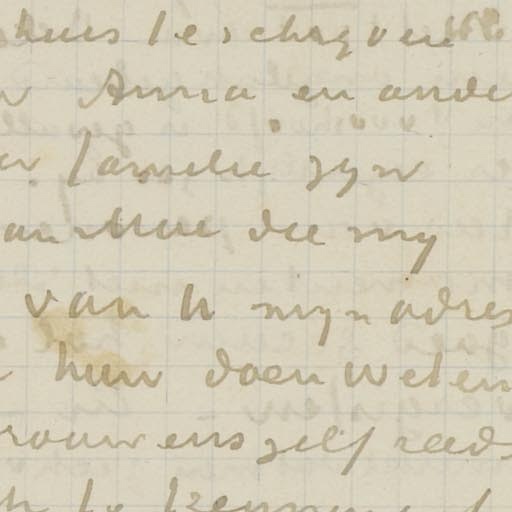 huis te schryven
Anna en ande
familie zyn
die my
van U myn adres
hun doen weten
rouwens zelf reeds
te kennen